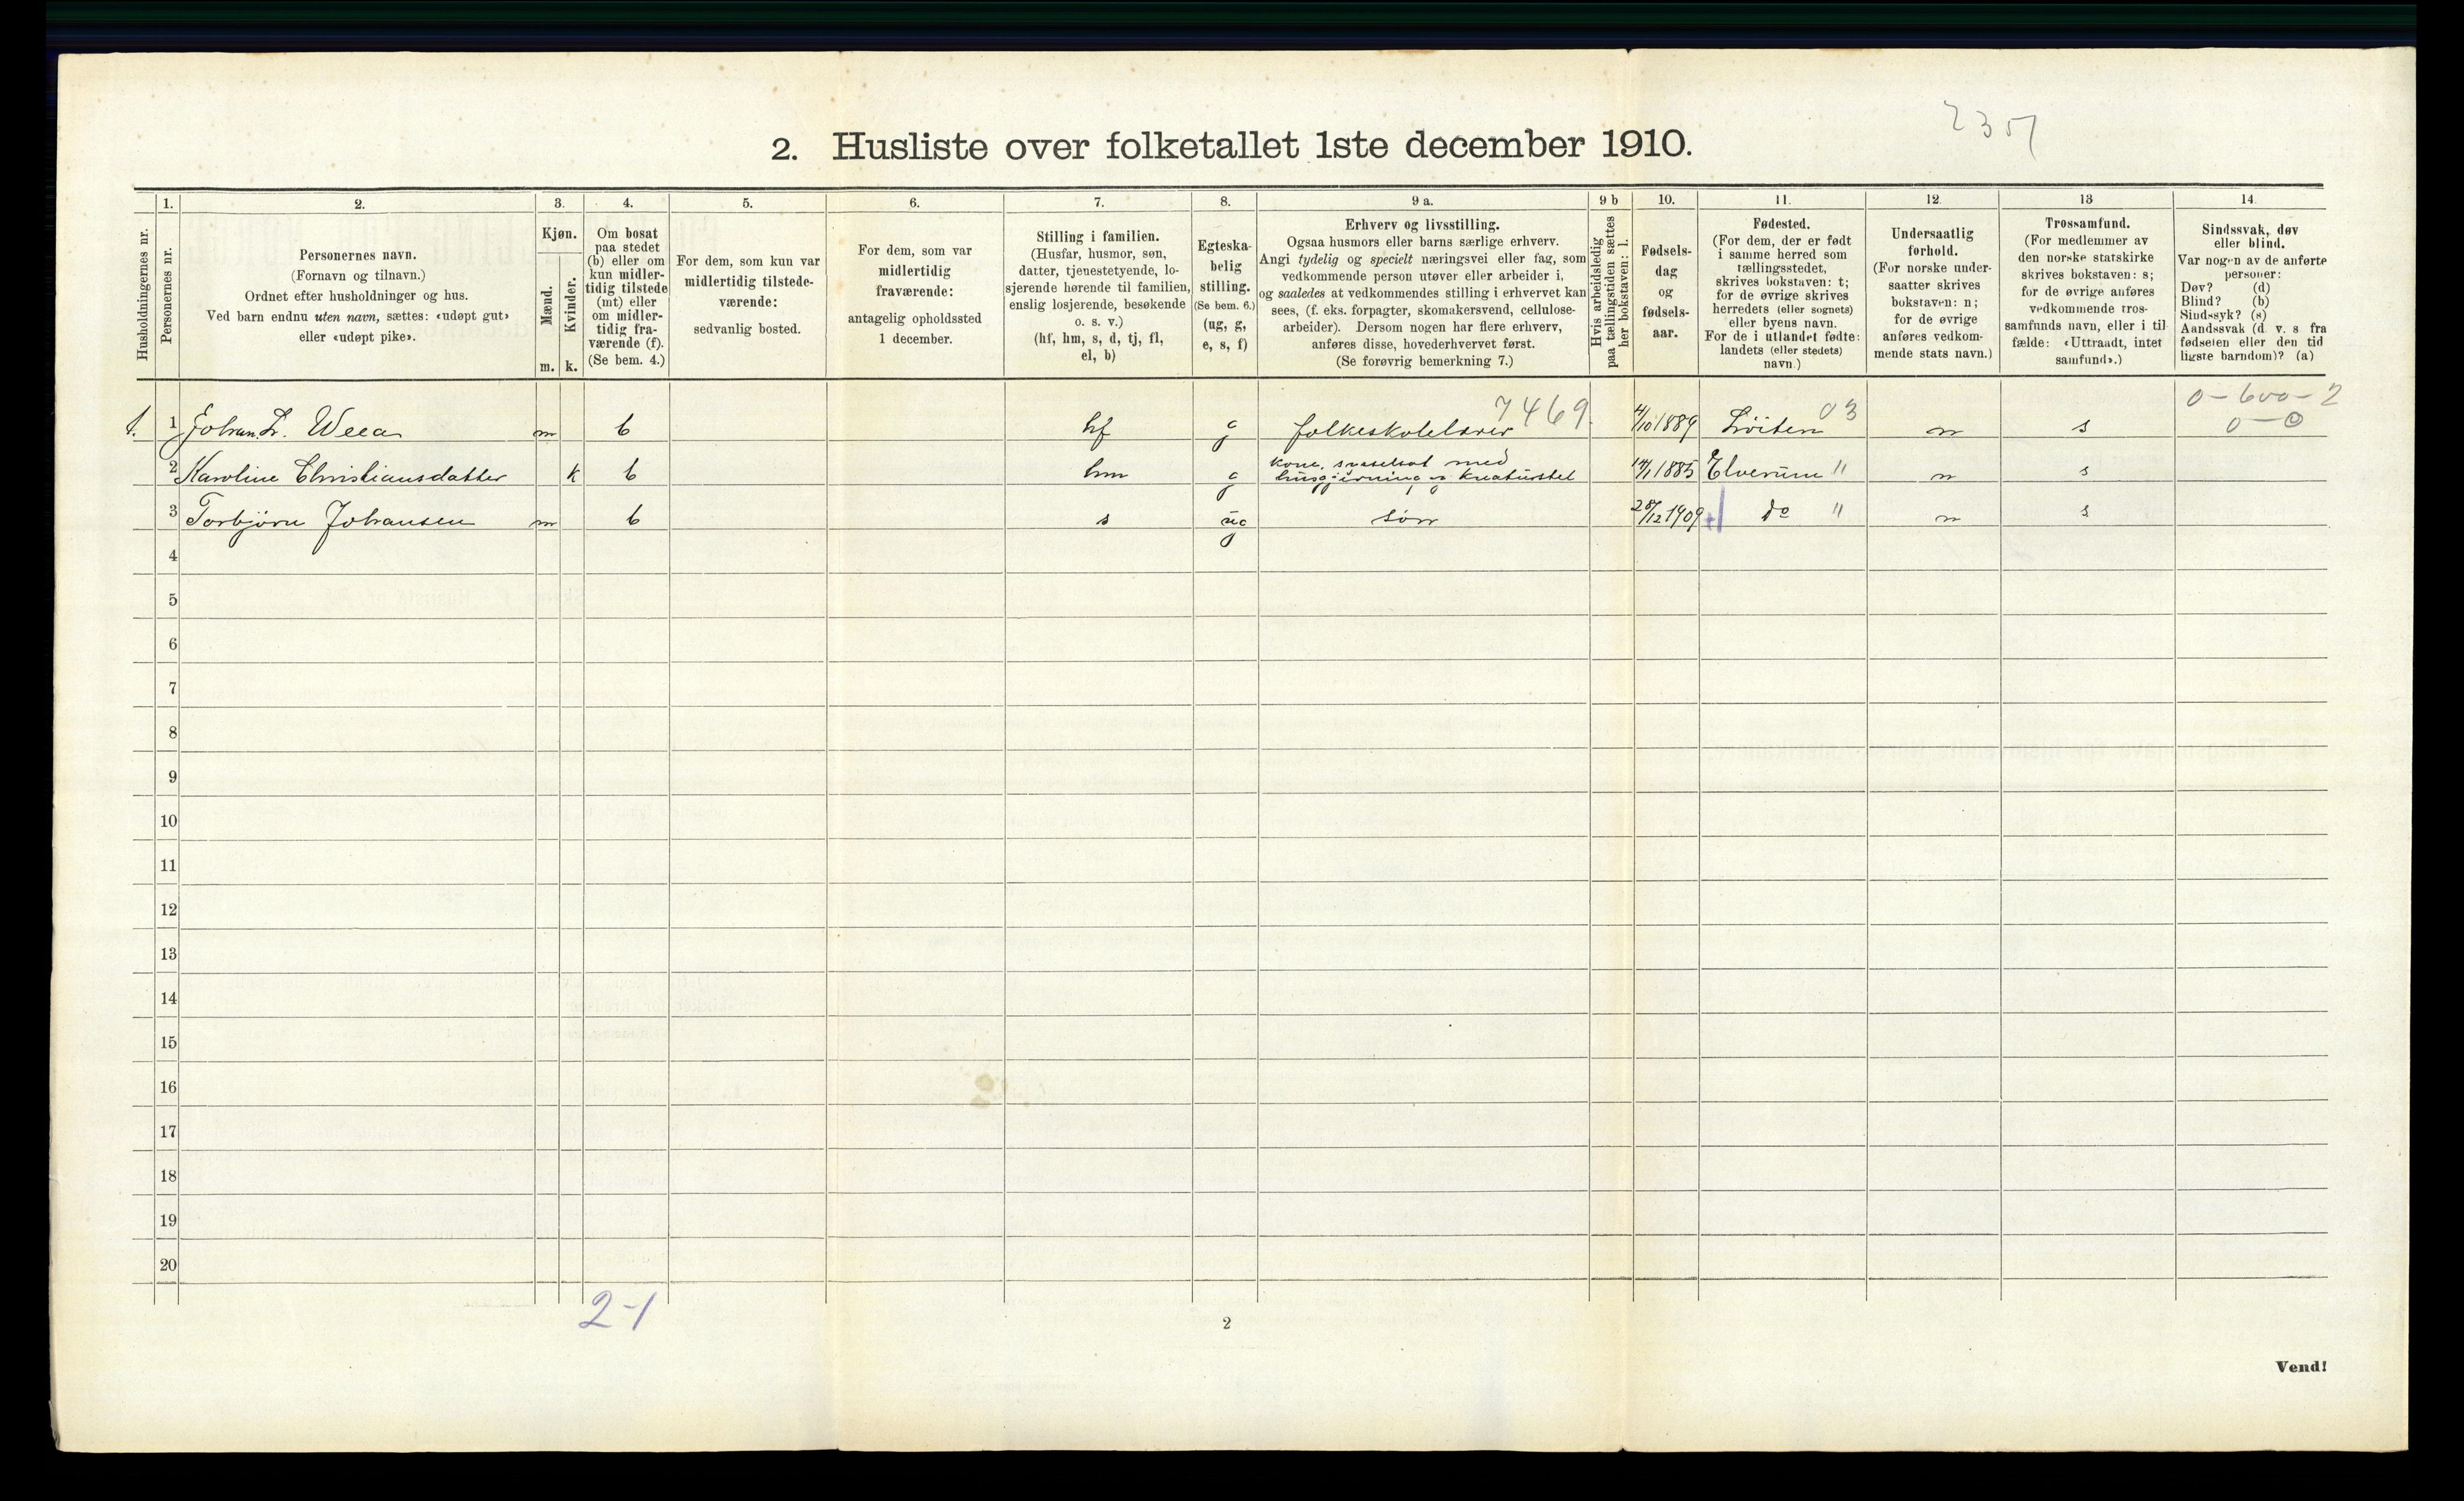 2351
2. Husliste over folketallet 1ste december 1910.
Husholdningernes nr.
1.
Personernes nr.
2.
Personernes navn.
(Fornavn og tilnavn.)
Ordnet efter husholdninger og hus.
Ved barn endnu uten navn, sættes: «udøpt gut»
eller «udøpt pike».
3.
Kjøn.
Mænd.
Kvinder.
m. k.
4.
Om bosat
paa stedet
(b) eller om
kun midler-
tidig tilstede
(mt) eller
om midler-
tidig fra-
værende (f).
(Se bem. 4.)
5.
For dem, som kun var
midlertidig tilstede-
værende:
sedvanlig bosted.
6.
For dem, som var
midlertidig
fraværende:
antagelig opholdssted
1 december.
7.
Stilling i familien.
(Husfar, husmor, søn,
datter, tjenestetyende, lo-
sjerende hørende til familien,
enslig losjerende, besøkende
o. s. v.)
(hf, hm, s, d, tj, fl,
el, b)
8.
Egteska-
belig
stilling.
(Se bem. 6.)
(ug, g,
e, s, f)
9 a.
Erhverv og livsstilling.
Ogsaa husmors eller barns særlige erhverv.
Angi tydelig og specielt næringsvei eller fag, som
vedkommende person utøver eller arbeider i,
og saaledes at vedkommendes stilling i erhvervet kan
sees, (f. eks. forpagter, skomakersvend, cellulose-
arbeider). Dersom nogen har flere erhverv,
anføres disse, hovederhvervet først.
(Se forøvrig bemerkning 7.)
9 b
Hvis arbeidsledig
paa tællingstiden sættes
her bokstaven: l.
10.
Fødsels-
dag
og
fødsels-
aar.
11.
Fødested.
(For dem, der er født
i samme herred som
tællingsstedet,
skrives bokstaven: t;
for de øvrige skrives
herredets (eller sognets)
eller byens navn.
For de i utlandet fødte:
landets (eller stedets)
navn.)
12.
Undersaatlig
forhold.
(For norske under-
saatter skrives
bokstaven: n;
for de øvrige
anføres vedkom-
mende stats navn.)
13
Trossamfund.
(For medlemmer av
den norske statskirke
skrives bokstaven: s;
for de øvrige anføres
vedkommende tros-
samfunds navn, eller i til-
fælde: «Uttraadt, intet
samfund».)
14.
Sindssvak, døv
eller blind.
Var nogen av de anførte
personer:
Døv? (d)
Blind? (b)
Sindssyk? (s)
Aandssvak (d. v. s. fra
fødselen eller den tid-
ligste barndom)? (a)
7469 03 0-600-2
0-0
1. 1 Johan L. Weea m b hf g folkeskolelærer 4/10 1889 Løiten n s
2 Karoline Christiansdatter k b hm g kone, sysselsat med
husgjerning og kreaturstel 14/1 1885 Elverum " n s
3 Torbjørn Johansen m b s ug søn 28/12 1909 do " n s
4
5
6
7
8
9
10
11
12
13
14
15
16
17
18
19
20
2-1
2
Vend!